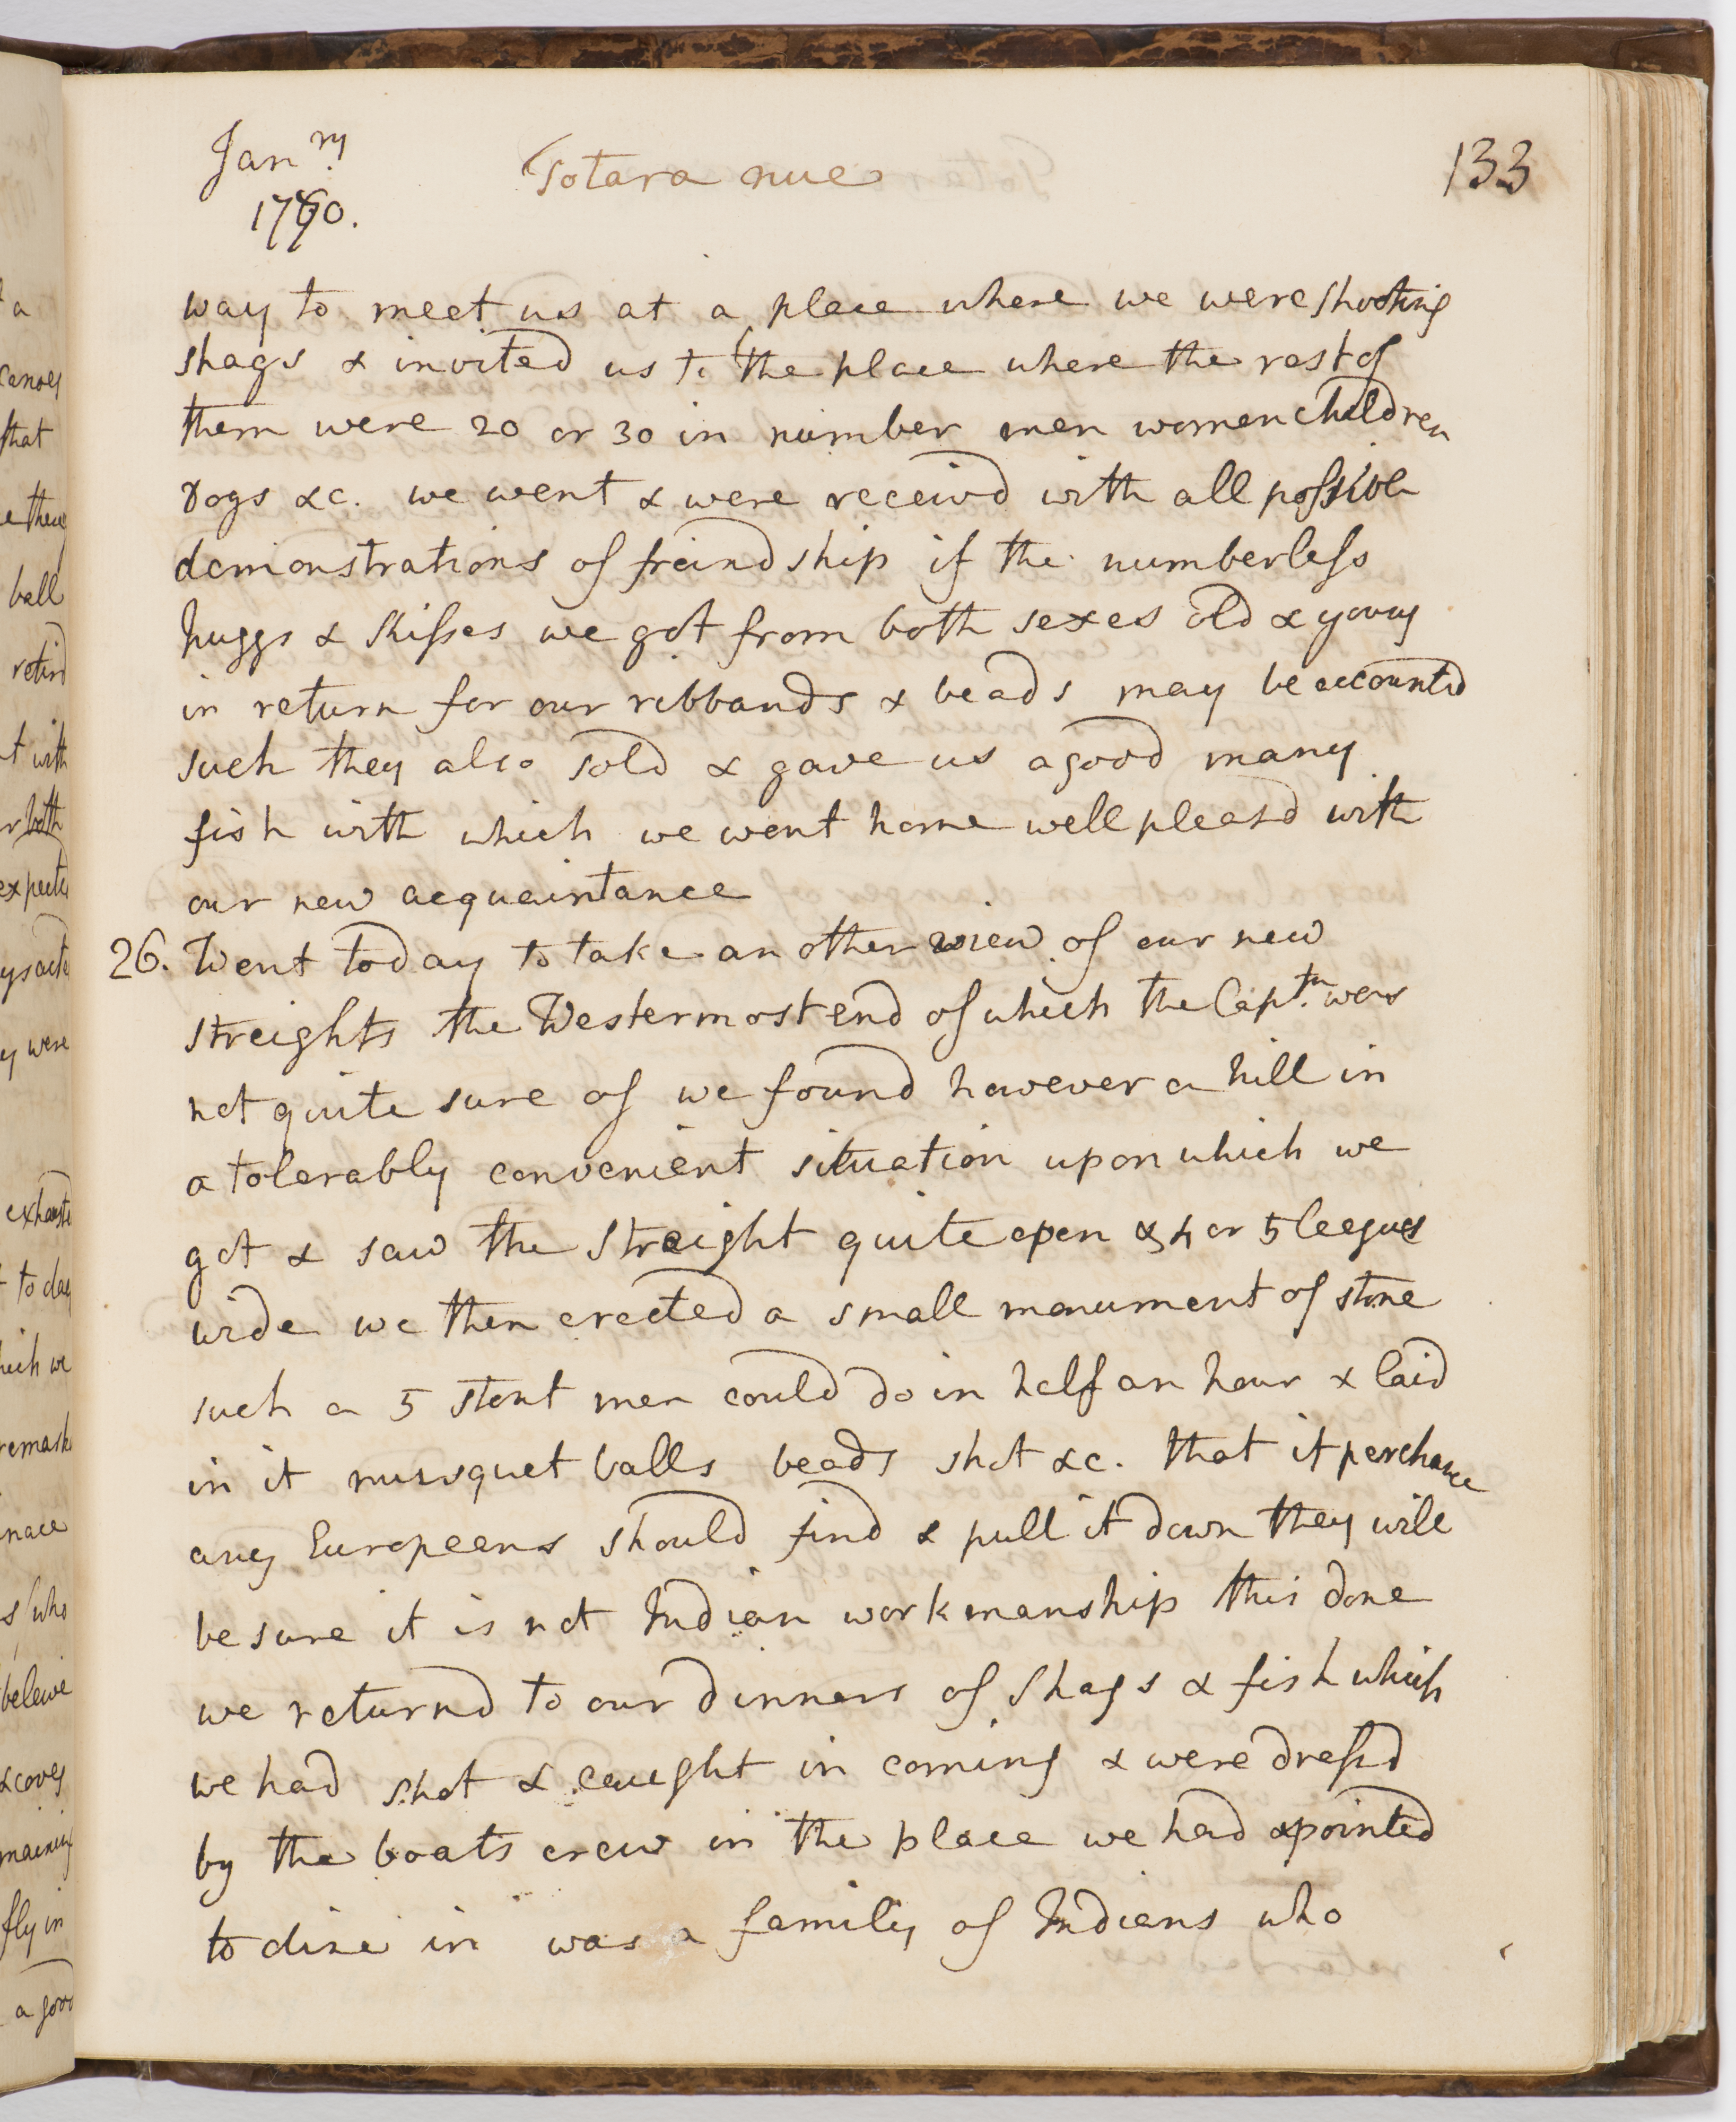 a
canoes
that
ball
retird
t with
r both
expecte
y were
exhauste
to day
hich we
remark
nace
s who
beleive
& coves
maining
fly in
a good
Janry
1770.
Totara nue
133
way to meet us at a place where we were shooting
shags & invited us to the place where the rest of
them were 20 or 30 in number men women children
Dogs &c. we went & were receivd with all possible
demonstrations of freindship if the numberless
huggs & kisses we got from both sexes old & young
in return for our ribbands & beads may be accounted
such they also sold & gave us a good many
fish with which we went home well pleasd with
our new acquaintance
26. Went today to take another view of our new
streights the Westermost end of which the Captn. was
not quite sure of we found however a hill in
a tolerably convenient situation upon which we
got & saw the Streight quite open & 4 or 5 leagues
wide we then erected a small monument of stone
such a 5 stout men could do in half an hour & laid
in it musquet balls beads shot &c. that if perchance
any Europeans should find & pull it down they will
be sure it is not Indian workmanship this done
we returnd to our dinners of Shags & fish which
we had shot & caught in coming & were dressd
by the boats crew in the place we had apointed
to dine in was a family of Indians who